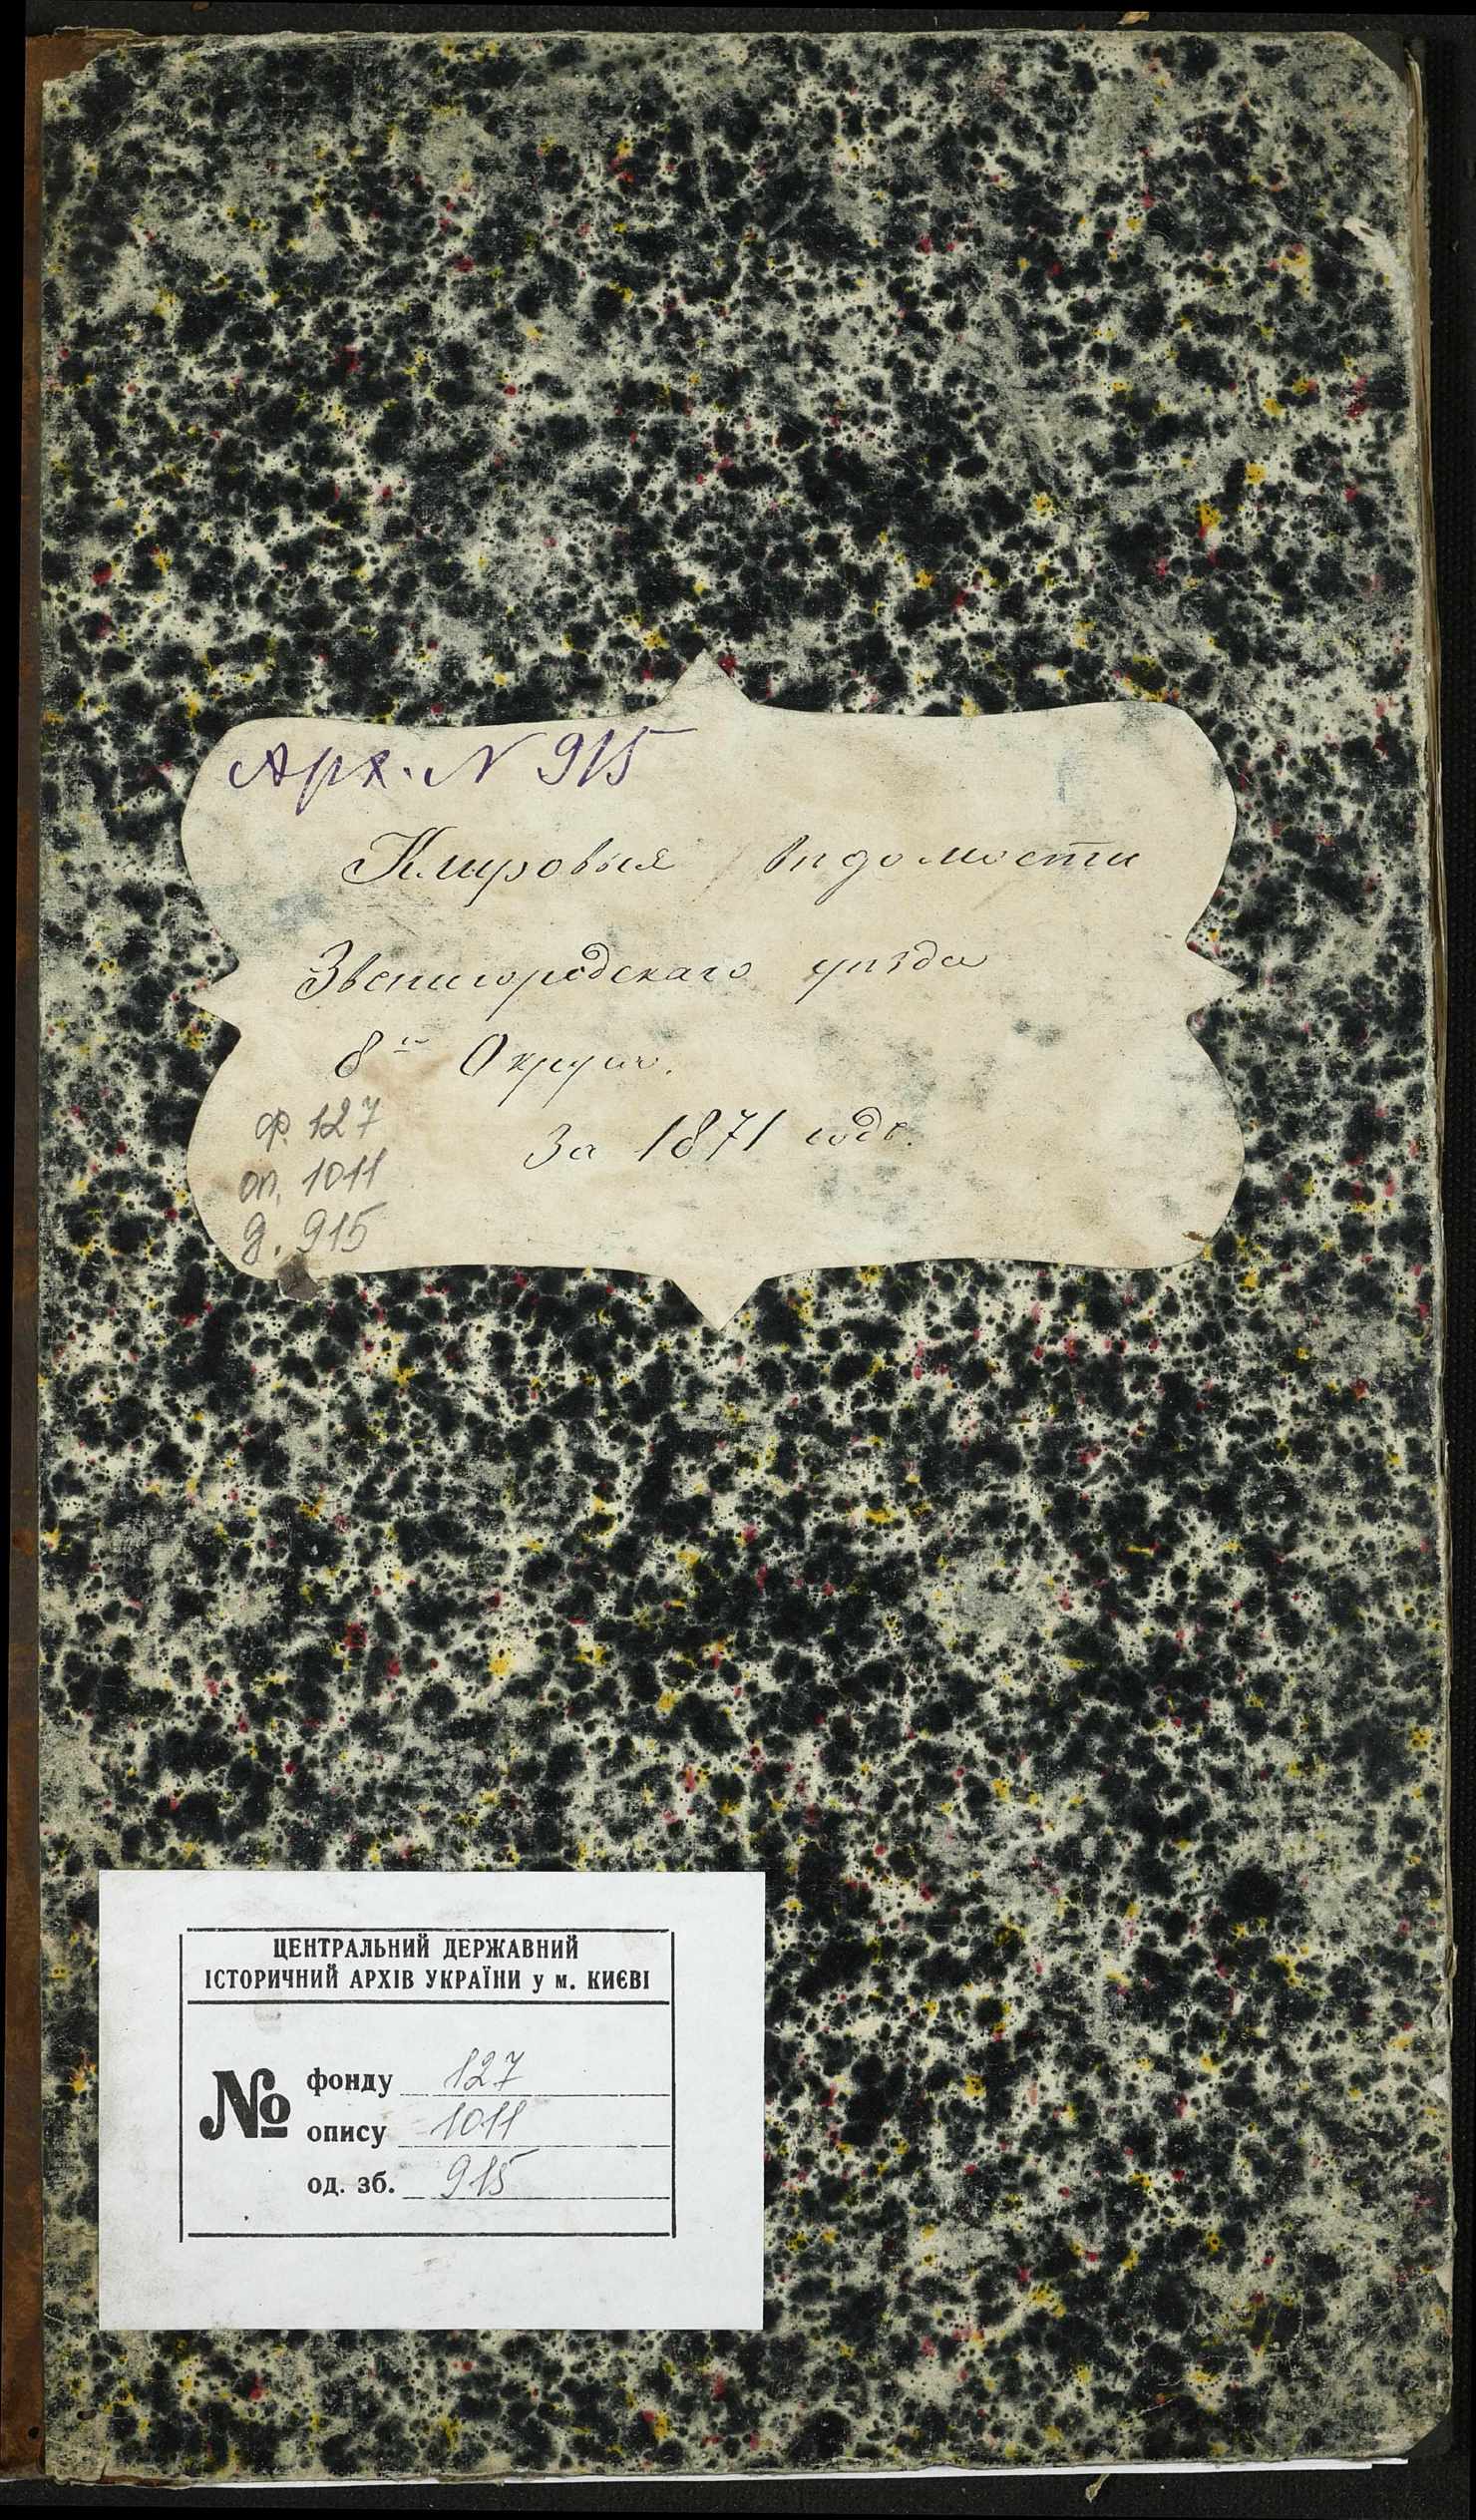 Арх. N 915
Клировыя вѣдомости
Звенигородскаго уѣзда
8го Округа.
За 1871 годъ.
ф. 127
оп. 1011
д. 915
ЦЕНТРАЛЬНИЙ ДЕРЖАВНИЙ
ІСТОРИЧНИЙ АРХІВ УКРАЇНИ у м. КИЄВІ
№
фонду 127
опису 1011
од. зб. 915